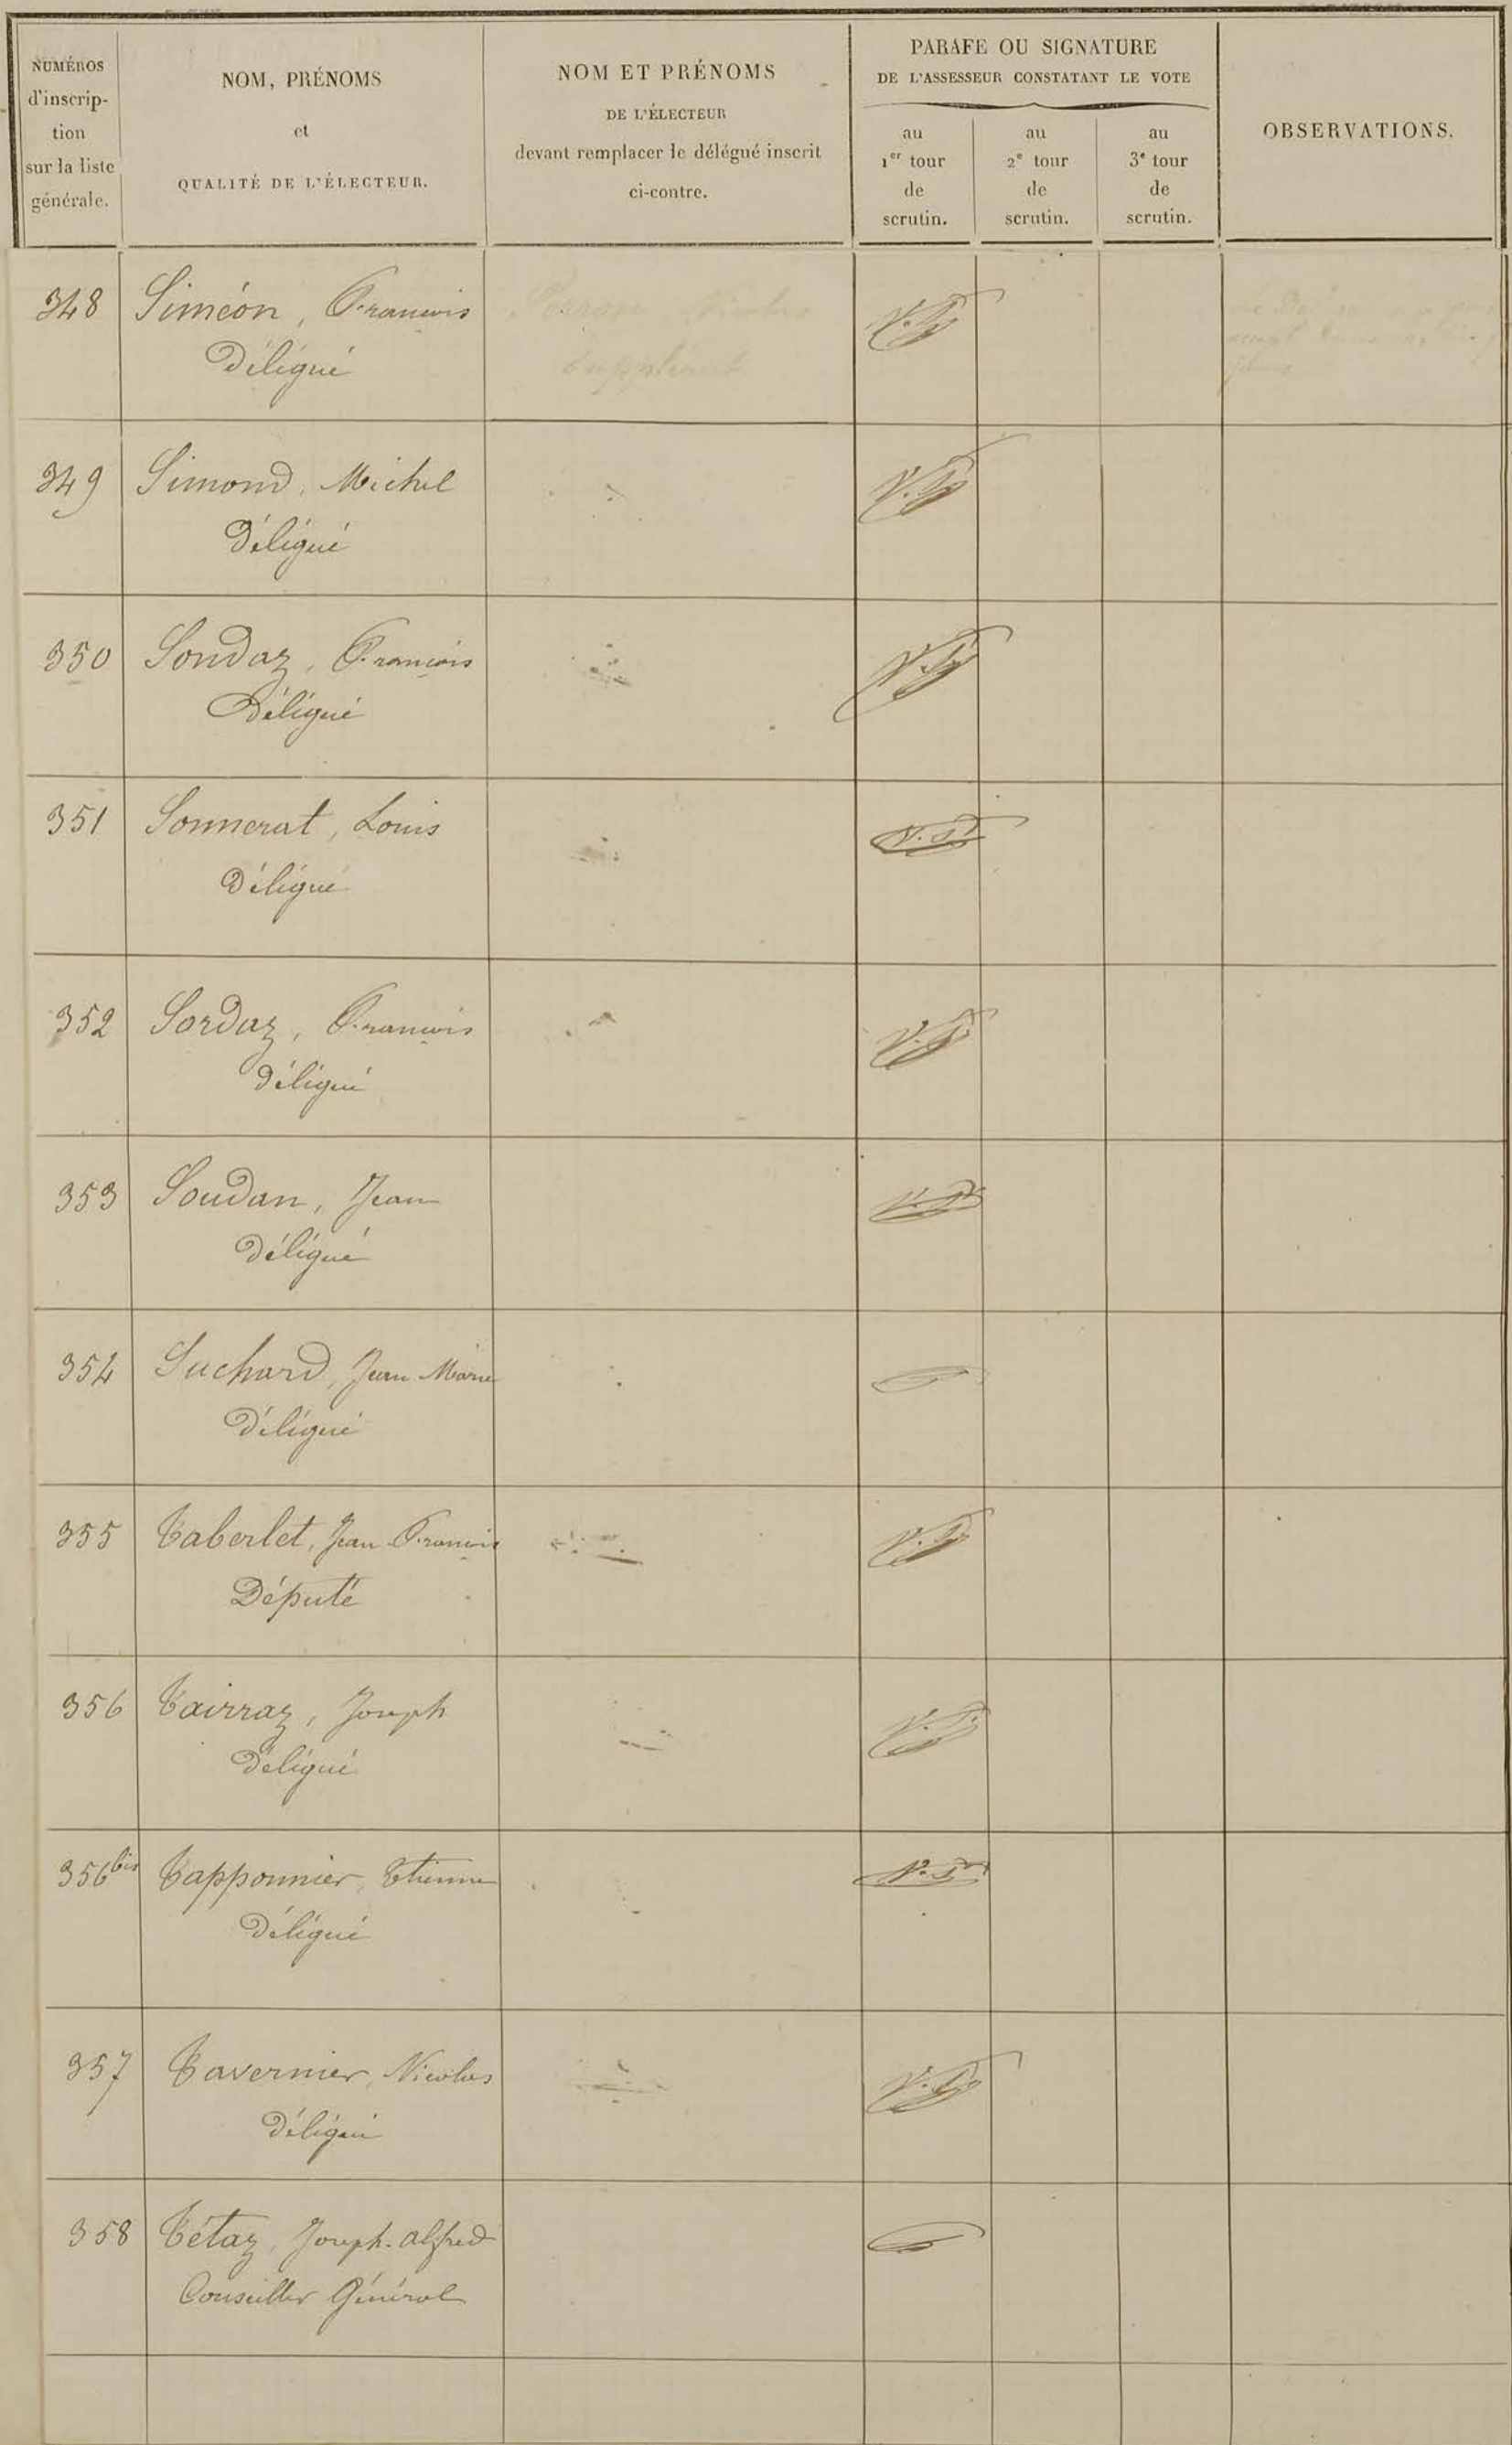 NUMÉROS
d'inscrip-
tion
sur la liste
générale.
NOM, PRÉNOMS
et
QUALITÉ DE L'ÉLECTEUR.
NOM ET PRÉNOMS
DE L'ÉLECTEUR
devant remplacer le délégué inscrit
ci-contre.
PARAFE OU SIGNATURE
DE L'ASSESSEUR CONSTATANT LE VOTE
au
1er tour
de
scrutin.
au
2e tour
de
scrutin.
au
3e tour
de
scrutin.
OBSERVATIONS.
348 Siméon, François Perron Nicolas
Délégué suppléant
349 Simond, Michel
Délégué
350 Sondaz, François
Délégué
351 Sonnerat, Louis
Délégué
352 Sordaz, François
Délégué
353 Soudan, Jean
Délégué
354 Suchard, Jean Marie
Délégué
355 Taberlet, Jean François
Député
356 Tairraz, Joseph
Délégué
356 bis Tapponnier, Etienne
Délégué
357 Tavernier, Nicolas
Délégué
358 Tétaz, Joseph-Alfred
Conseiller Général